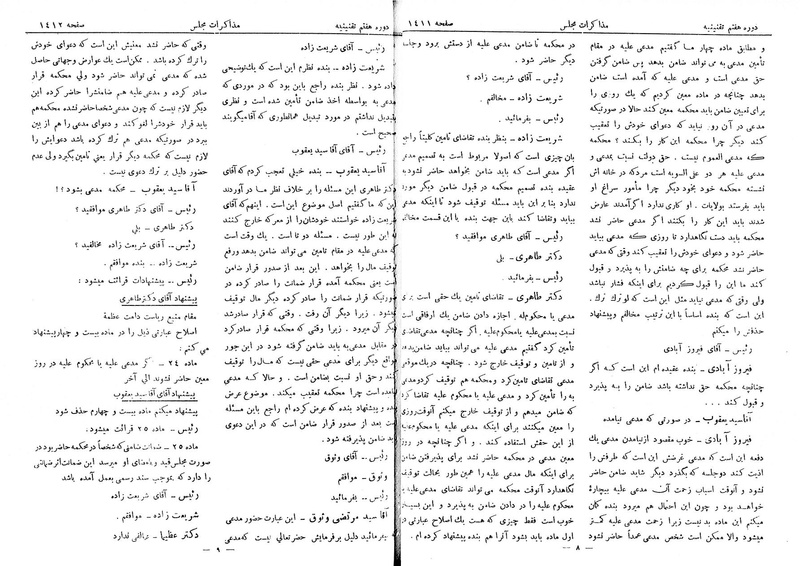 دوره هفتم تقنینیه
مذاکرات مجلس
صفحه ۱۴۱۱
و مطابق ماده چهار ما گفتیم مدعی علیه در مقام
تأمین مدعی به می تواند ضامن بدهد پس ضامن گرفتن
حق مدعی است و مدعی علیه که آمده است ضامن
بدهد چنانچه در ماده معین کردیم که یك روزی را
برای تعیین ضامن باید محکمه معین کند حالا در صورتیکه
مدعی در آن روز نیاید که دعوای خودش را تعقیب
کند دیگر چرا محکمه این کار را بکند ؟ محکمه
که مدعی العموم نیست . حق دولت نسبت بمدعی و
مدعی علیه هر دو علی السویه است مردکه در خانه اش
نشسته محکمه خود بخود دیگر چرا مأمور سراغ او
باید بفرستد بولایات . او کاری ندارد اگر آمدند عارض
شدند باید این کار را بکنند اگر مدعی حاضر نشد
محکمه باید دست نگاهدارد تا روزی که مدعی بیاید
حاضر شود و دعوای خودش را تعقیب کند وقتی که مدعی
حاضر نشد محکمه برای چه ضامنش را به پذیرد و قبول
کند ما این را قبول کردیم برای اینکه فشار نباشد
ولی وقتی که مدعی نیاید مثل این است که او ترك کرده
است که بنده اساساً با این ترتیب مخالفم و پیشنهاد
حذفش را میکنم
رئیس – آقای فیروز آبادی
فیروز آبادی – بنده عقیده ام این است که اگر
چنانچه محکمه حق نداشته باشد ضامن را به پذیرد
و قبول کند . . .
آقاسید یعقوب – در صورتی که مدعی نیامده
فیروز آبادی – خوب مقصود از نیامدن مدعی یك
دفعه این است که مدعی غرضش این است که طرفش را
اذیت کند دو جلسه که بگذرد دیگر شاید ضامن حاضر
نشود و آنوقت اسباب زحمت آن مدعی علیه بیچاره
خواهد بود و چون این احتمال هم میرود بنده گمان
میکنم این ماده بد نیست زیرا زحمت مدعی علیه کمتر
میشود والا ممکن است شخص مدعی عمداً حاضر نشود
در محکمه تا ضامن مدعی علیه از دستش برود وجای
دیگر حاضر شود .
رئیس – آقای شریعت زاده ؟
شریعت زاده – مخالفم .
رئیس – بفرمائید .
شریعت زاده – بنظر بنده تقاضای تامین کلیتاً راجع
بآن چیزی است که اصولا مربوط است به تصمیم مدعی
اگر مدعی است که باید ضامن بخواهد حاضر نشود به
عقیده بنده تصمیم محکمه در قبول ضامن دیگر مورد
ندارد بنا بر این باید مسئله توقیف شود تا اینکه مدعی
بیاید و تقاضا کند باین جهت بنده با این قسمت مخالفم
رئیس – آقای طاهری موافقید ؟
دکتر طاهری – بلی
رئیس – بفرمائید .
دکتر طاهری – تقاضای تامین یك حقی است برای
مدعی یا محکوم له . اجازه دادن ضامن یك ارفاقی است
نسبت بمدعی علیه یا محکوم علیه . اگر چنانچه مدعی تقاضای
تأمین کرد گفتیم مدعی علیه می تواند بیاید ضامن بدهد
و از تأمین و توقیف خارج شود . چنانچه در یك موقعی
مدعی تقاضای تامین کرد و محکمه هم توقیف کرد و مدعی
به را تأمین کرد و مدعی علیه یا محکوم علیه تقاضا کرد
که ضامن میدهم و از توقیف خارج میکنم آنوقت روزی
را معین میکنند برای اینکه مدعی علیه یا محکوم علیه
از این حق استفاده کند . و اگر چنانچه در روز
معین مدعی علیه حاضر نشد برای پذیرفتن ضامن
برای اینکه مال مدعی علیه را همین طور بحالت توقیف
نگاهدارد آنوقت محکمه می تواند تقاضای مدعی علیه یا
محکوم علیه را در دادن ضامن به پذیرد و این بسیار
خوب است فقط چیزی که هست یك اصلاح عبارتی در
اول ماده باید بشود آنرا هم بنده پیشنهاد کرده ام .
۸
دوره هفتم تقنینیه
مذاکرات مجلس
صفحه ۱۴۱۲
رئیس – آقای شریعت زاده
شریعت زاده – بنده نظرم این است که توضیحی
داده شود . نظر بنده راجع باین بود که در موردی که
مدعی به بواسطه اخذ ضامن تأمین شده است و نظری
تبدیل نداشتم در مورد تبدیل همانطوری که آقا میگویند
صحیح است .
رئیس – آقای آقا سید یعقوب
آقا سید یعقوب – بنده خیلی تعجب کردم که آقای
دکتر طاهری این مسئله را بر خلاف نظر ما در آوردند
این که ما گفتیم اصل موضوع این است . اینهم که آقای
شریعت زاده خواستند خودشان را از معرکه خارج کنند
این طور نیست . مسئله دو تا است . یك وقت است
که مدعی علیه در مقام تامین می تواند ضامن بدهد ورفع
توقیف مال را بخواهد . این بعد از صدور قرار ضامن
است یعنی محکمه آمده قرار ضمانت را صادر کرده در
صورتیکه قرار ضمانت را صادر کرده دیگر مال توقیف
نمیشود . زیرا دیگر آن وقت . وقتی که قرار صادر شد
دیگر آن میرود . زیرا وقتی که محکمه قرار صادر کرد
در مقابل مدعی به باید ضامن گرفته شود در این جور
مواقع دیگر برای مدعی حقی نیست که مال را توقیف
کند و حق او نسبت بضامن است . و حالا که مدعی
نیامده است چرا محکمه تعقیب میکند . موضوع عرض
بنده و پیشنهاد بنده که عرض کرده ام راجع باین مسئله
است بعد از صدور قرار ضامن که است که در این دعوی
باید ضامن پذیرفته شود .
رئیس – آقای وثوق
وثوق – موافقم
رئیس – بفرمائید
آقا سید مرتضی وثوق – این عبارت حضور مدعی
بفرمائید دلیل بر فرمایش حضرتعالی نیست که مدعی
وقتی که حاضر نشد معنیش این است که دعوای خودش
را ترك کرده باشد . ممکن است یك عوارض وجهاتی حاصل
شده که مدعی نمی تواند حاضر شود ولی محکمه قرار
صادر کرده و مدعی علیه هم ضامنش را حاضر کرده این
دیگر لازم نیست که چون مدعی شخصاً حاضر نشده محکمه هم
باید قرار خودش را لغو کند و دعوای مدعی را هم از بین
ببرد در صورتیکه مدعی هم ترك کرده باشد دعوای را
لازم نیست که محکمه دیگر قرار یعنی تامین بگیرد ولی عدم
حضور دلیل بر ترك دعوی نیست .
آقا سید یعقوب – محکمه مدعی بشود ؟!
رئیس – آقای دکتر طاهری موافقید ؟
دکتر طاهری – بلی
رئیس – آقای شریعت زاده مخالفید ؟
شریعت زاده . . بنده موافقم .
رئیس – پیشنهادات قرائت میشود :
پیشنهاد آقای دکتر طاهری
مقام منیع ریاست دامت عظمة
اصلاح عبارتی ذیل را در ماده بیست و چهار پیشنهاد
می کنم :
ماده ۲۴ – اگر مدعی علیه یا محکوم علیه در روز
معین حاضر نشوند الی آخر
پیشنهاد آقای آقا سید یعقوب
پیشنهاد میکنم ماده بیست و چهارم حذف شود
رئیس – ماده ۲۵ قرائت میشود .
ماده ۲۵ – ضمانت ضامنی که شخصاً در محکمه حاضر بود در
صورت مجلس قید و بامضای او میرسد این ضمانت اثر ضمانتی
را دارد که بموجب سند رسمی بعمل آمده باشد
رئیس – آقای شریعت زاده
شریعت زاده – موافقم .
دکتر عظیما – مخالفی ندارد
۹